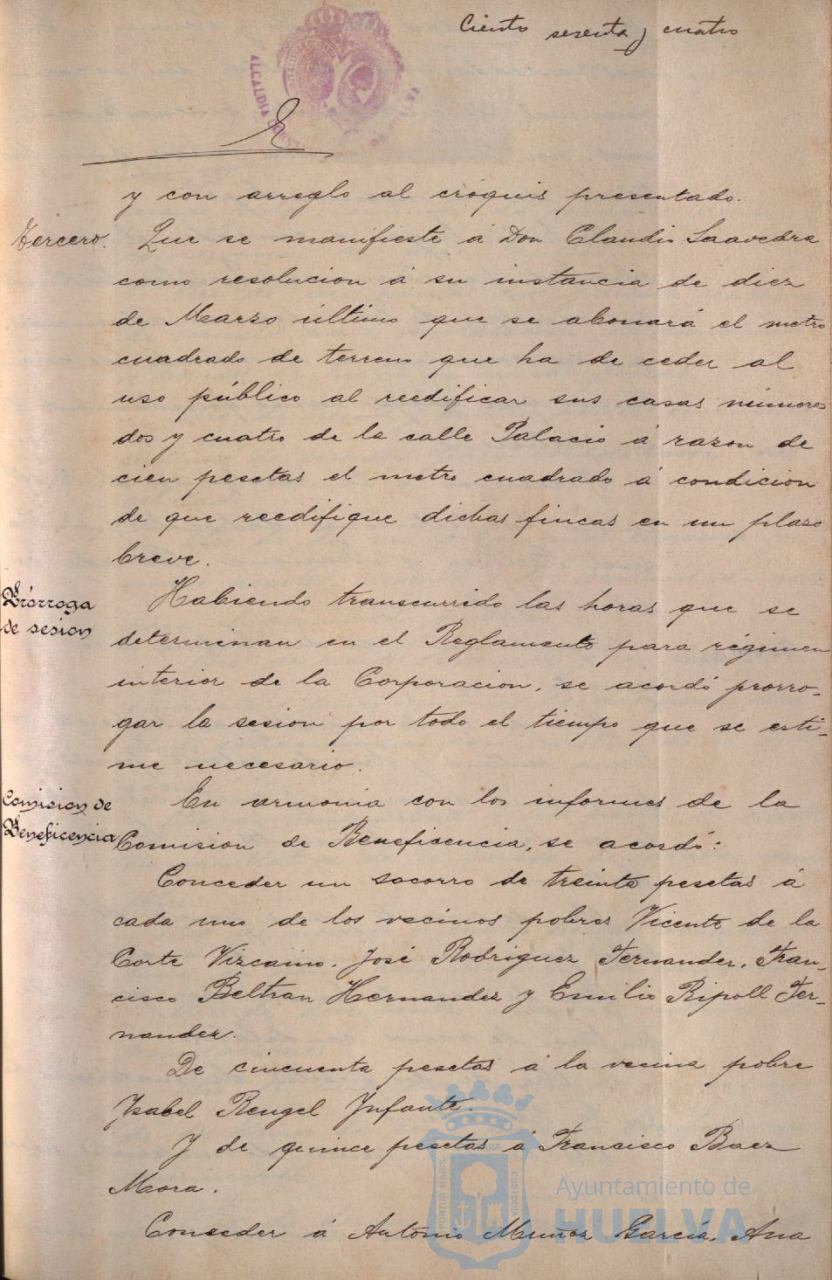 Ciento sesenta y cuatro
ALCALDIA
y con arreglo al cróquis presentado.
Tercero. Que se manifieste á Don Claudio Saavedra
como resolucion á su instancia de diez
de Marzo último que se abonará el metro
cuadrado de terreno que ha de ceder al
uso público al reedificar sus casas números
dos y cuatro de la calle Palacio á razon de
cien pesetas el metro cuadrado á condicion
de que reedifique dichas fincas en un plazo
breve.
Prórroga
de sesion
Habiendo transcurrido las horas que se
determinan en el Reglamento para régimen
interior de la Corporacion, se acordó prorro-
gar la sesion por todo el tiempo que se esti-
me necesario.
Comision de
Beneficencia
En armonia con los informes de la
Comision de Beneficencia, se acordó:
Conceder un socorro de treinta pesetas á
cada uno de los vecinos pobres Vicente de la
Corte Vizcaino, José Rodriguez Fernandez, Fran-
cisco Beltran Hernandez y Emilio Ripoll Fer-
nandez.
De cincuenta pesetas á la vecina pobre
Ysabel Rengel Ynfante.
Y de quince pesetas á Francisco Baez
Mora.
Conceder á Antonio Muñoz García, Ana
Ayuntamiento de
HUELVA